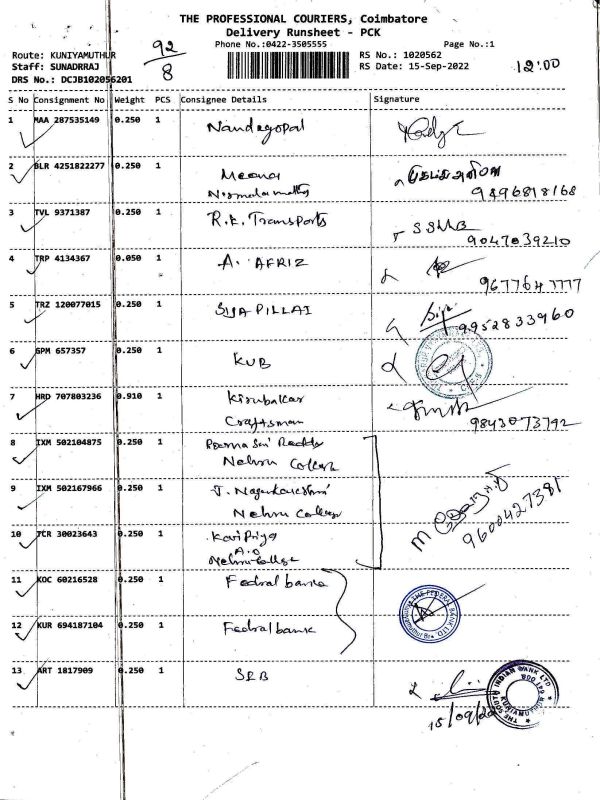 THE PROFESSIONAL COURIERS, Coimbatore
Delivery Runsheet - PCK
Phone No.:0422-3505555
Page No.:1
Route: KUNIYAMUTHUR
92/8
RS No.: 1020562
Staff: SUNADRRAJ
RS Date: 15-Sep-2022
12:00
DRS No.: DCJB102056201
S No Consignment No Weight PCS Consignee Details Signature
1 MAA 287535149 0.250 1 Nandagopal
2 BLR 4251822277 0.250 1 Meena
9496818168
3 TVL 9371387 0.250 1 R.K. Transports SSMB
9047039210
4 TRP 4134367 0.050 1 A. AFRIZ
9677647777
5 TRZ 120077015 0.250 1 SIJA PILLAI
9952833960
6 GPM 657357 0.250 1 KVB
7 HRD 707803236 0.910 1 Kirubakar
Craftsman 9843073792
8 IXM 502104875 0.250 1 Reddy
Nehru College
9 IXM 502167966 0.250 1
Nehru College
9600427381
10 TCR 30023643 0.250 1 Kavipriya
A.O
Nehru College
11 KOC 60216528 0.250 1 Fedral bank
THE FEDERAL BANK LTD
12 KUR 694187104 0.250 1 Fedral bank
13 ART 1817909 0.250 1 SIB
THE SOUTH INDIAN BANK LTD
KUNIAMUTHUR
15/09/22